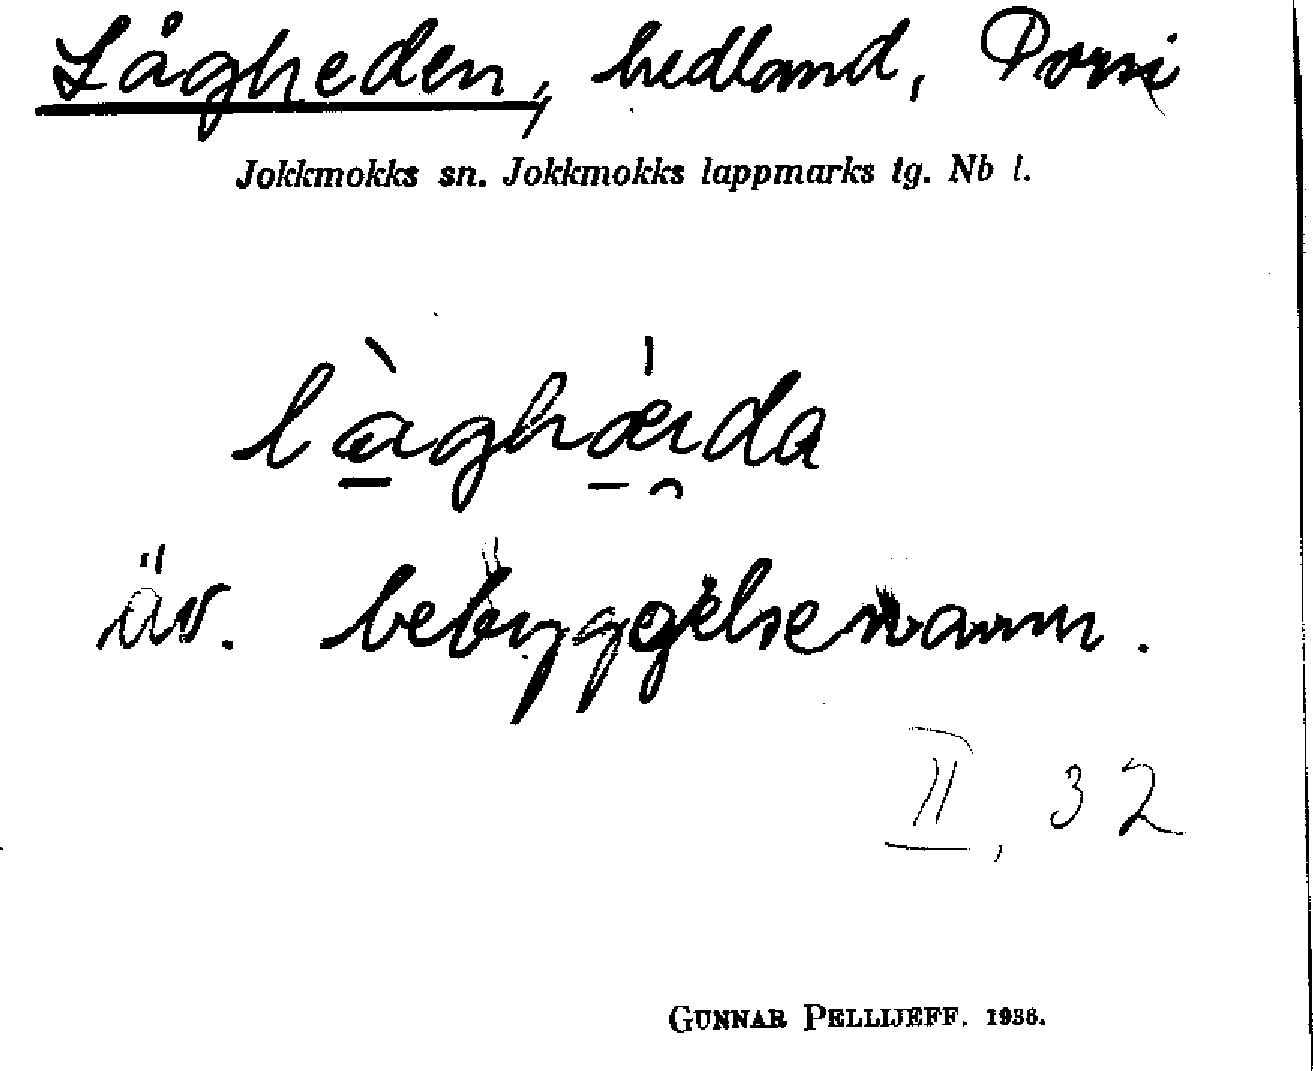 Lågheden, hedland, Porsi
Jokkmokks sn. Jokkmokks lappmarks tg. Nb l.
làghæ̍ɪda
äv. bebyggelsenamn.
II, 32
GUNNAR PELLIJEFF. 1936.